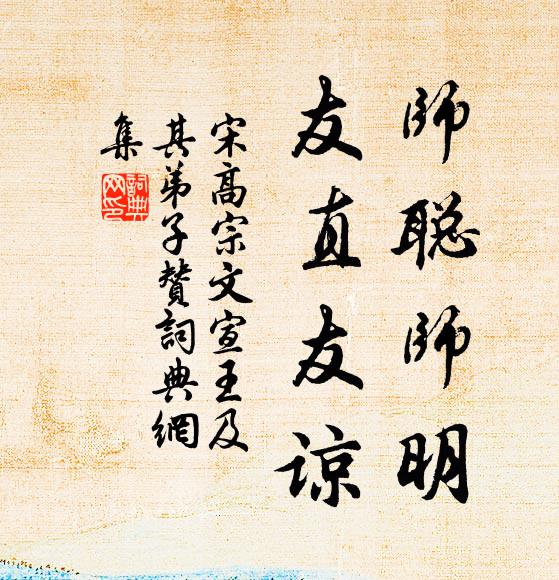 師聡師明
友直友諒
宋高宗文宣王及
其弟子贊詞典網
集
詞典
网印